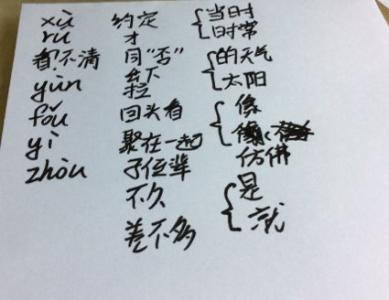 xù
rú
不清
yùn
fǒu
yì
zhòu
约定
才
同“否”
下
拉
回头看
聚在一起
辈
不久
差不多
当时
时常
的天气
太阳
像
仿佛
是
就